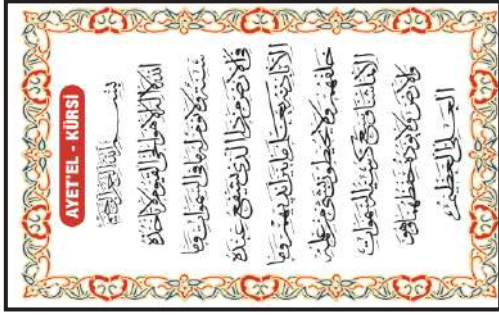 AYET'EL - KÜRSİ
بِسْمِ اللّٰهِ الرَّحْمٰنِ الرَّحِيمِ
اَللّٰهُ لَا اِلٰهَ اِلَّا هُوَ الْحَيُّ الْقَيُّومُ لَا تَأْخُذُهُ
سِنَةٌ وَلَا نَوْمٌ لَهُ مَا فِي السَّمٰوَاتِ وَمَا
فِي الْاَرْضِ مَنْ ذَا الَّذِي يَشْفَعُ عِنْدَهُ
اِلَّا بِاِذْنِهِ يَعْلَمُ مَا بَيْنَ اَيْدِيهِمْ وَمَا
خَلْفَهُمْ وَلَا يُحِيطُونَ بِشَيْءٍ مِنْ عِلْمِهِ
اِلَّا بِمَا شَاءَ وَسِعَ كُرْسِيُّهُ السَّمٰوَاتِ
وَالْاَرْضَ وَلَا يَؤُدُهُ حِفْظُهُمَا وَهُوَ
الْعَلِيُّ الْعَظِيمُ